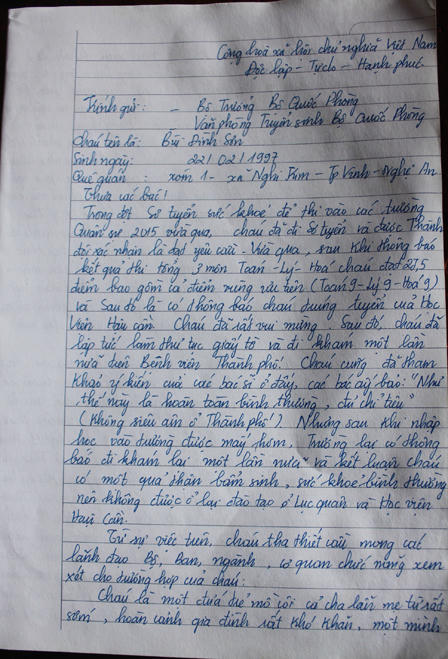 Cộng hoà xã hội chủ nghĩa Việt Nam
Độc lập - Tự do - Hạnh phúc
Kính gửi : - Bộ Trưởng Bộ Quốc Phòng
Văn phòng Tuyển sinh Bộ Quốc Phòng
Cháu tên là: Bùi Đình Sơn
Sinh ngày: 22/02/1997
Quê quán: xóm 1 - xã Nghi Kim - Tp Vinh - Nghệ An
Thưa các bác!
Trong đợt Sơ tuyển sức khoẻ để thi vào các trường
Quân sự 2015 vừa qua, cháu đã đi Sơ tuyển và được Thành
đội xác nhận là đạt yêu cầu. Vừa qua, sau khi thông báo
kết quả thi tổng 3 môn Toán - Lý - Hoá cháu đạt 27,5
điểm bao gồm cả điểm vùng ưu tiên (Toán 9 - Lý 9 - Hoá 9)
và Sau đó là có thông báo cháu trúng tuyển của Học
Viện Hậu cần. Cháu đã rất vui mừng. Sau đó, cháu đã
lập tức làm thủ tục giấy tờ và đi khám một lần
nữa trên Bệnh viện Thành phố. Cháu cũng đã tham
khảo ý kiến của các bác sĩ ở đây, các bác ấy bảo: "Như
thế này là hoàn toàn bình thường, đủ chỉ tiêu"
(Không siêu âm ở Thành phố). Nhưng sau khi nhập
học vào trường được mấy hôm, Trường lại có thông
báo đi khám lại một lần nữa và kết luận cháu
có một quả thận bẩm sinh, sức khoẻ bình thường
nên không được ở lại đào tạo ở Lục quân và Học viện
Hậu Cần.
Từ sự việc trên, cháu tha thiết cầu mong các
lãnh đạo Bộ, Ban, ngành, cơ quan chức năng xem
xét cho trường hợp của cháu:
Cháu là một đứa trẻ mồ côi cả cha lẫn mẹ từ rất
sớm, hoàn cảnh gia đình rất khó khăn, một mình